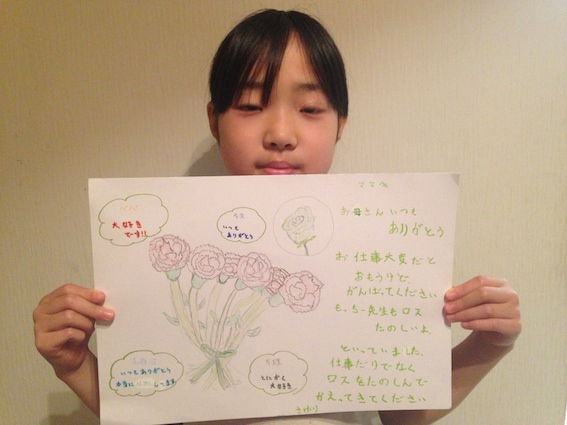 大好き
です!!
いつも
ありがとう
いつもありがとう
本当に
してます
とにかく
大好き
ママへ
お母さんいつも
ありがとう
お仕事大変だと
おもうけど、
がんばってください
先生もロス
たのしいよ
といっていました。
仕事だけでなく
ロスをたのしんで
かえってきてください
さゆり